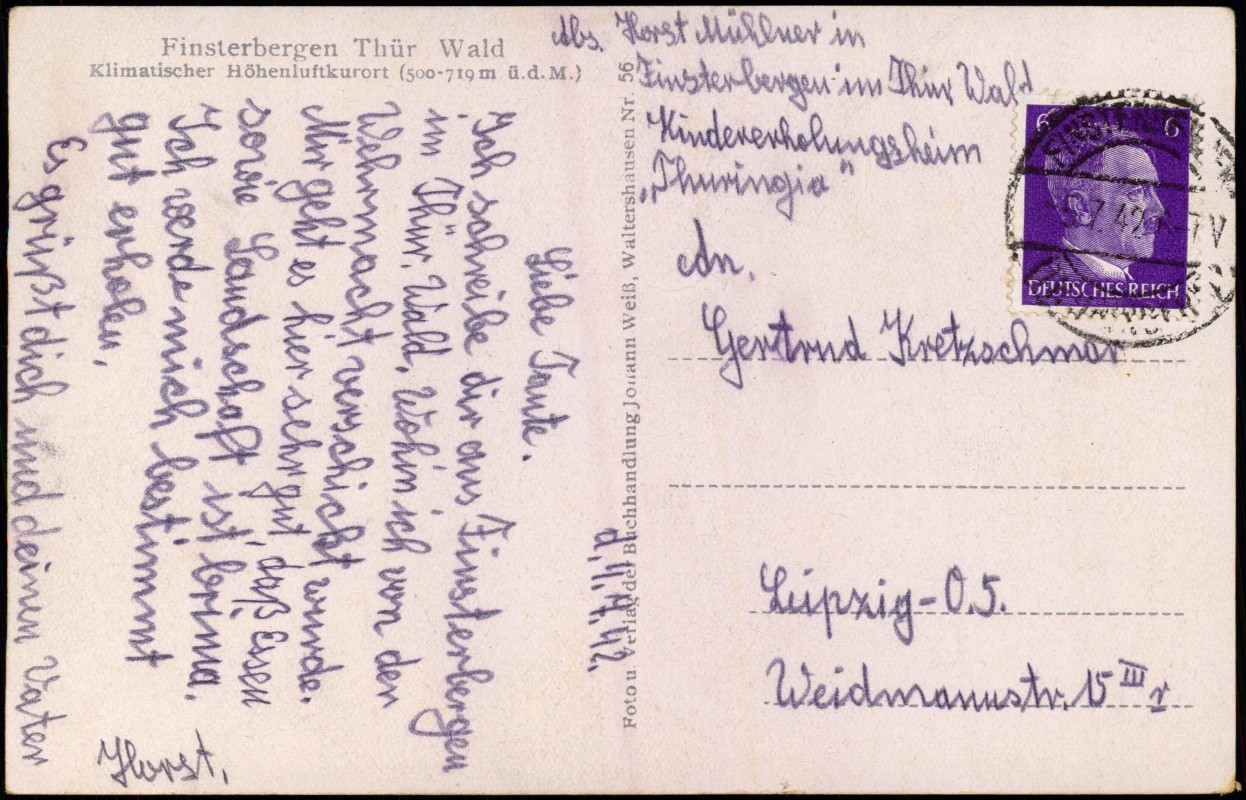 Finsterbergen Thür Wald
Klimatischer Höhenluftkurort (500-719 m ü.d.M.)
d. 4. 7. 42.
Liebe Tante.
Ich schreibe dir aus Finsterbergen
im Thür. Wald. Wohin ich von der
Wehrmacht verschickt wurde.
Mir geht es hier sehr gut, daß Essen
sowie Landschaft ist brima.
Ich werde mich bestimmt
gut erholen.
Es grüßt dich und deinen Vater
Horst.
Foto u. Verlag der Buchhandlung Johann Weiß, Waltershausen Nr. 56
Abs. Horst Mühlner in
Finsterbergen im Thür Wald
Kindererholungsheim
„Thuringia"
An.
Gertrud Kretzschmar
Leipzig-O.5.
Weidmannstr. 15 III r
6 6
DEUTSCHES REICH
7.42.6-7V